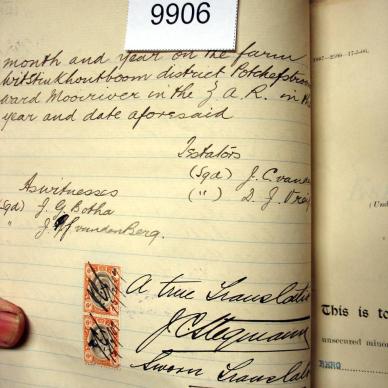 9906
month and year on the farm
Witstinkhoutboom district Potchefstroom
ward Mooiriver in the Z A R. in the
year and date aforesaid
Testators
(Sgd) J. C. vande
(") D. J.
As witnesses
(Sgd) J. G Botha
" J vandenBerg.
A true Translatio
J C Stegmann
Sworn Translat
(Und
This is to
unsecured minor
BERG